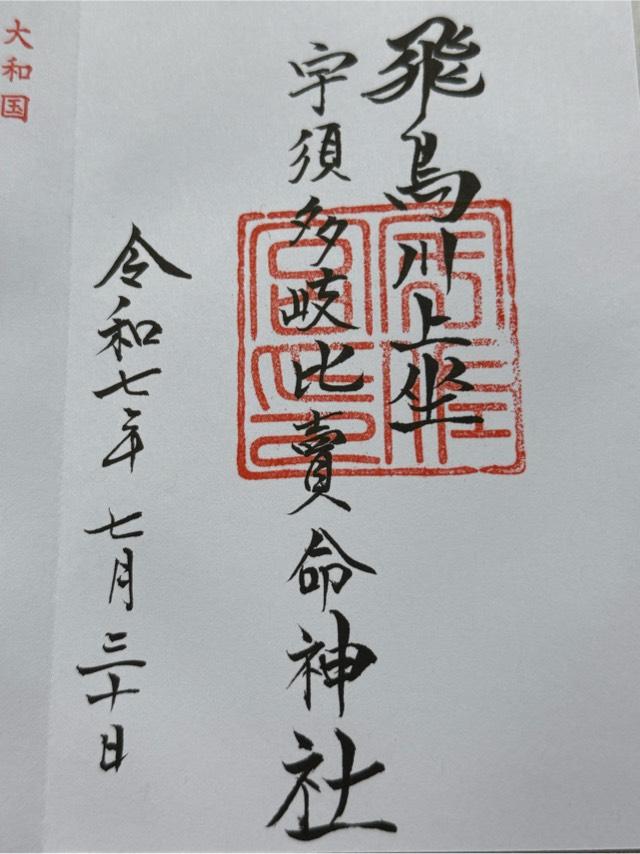 飛鳥川上坐
宇須多岐比賣命神社
令和七年 七月三十日
大和国